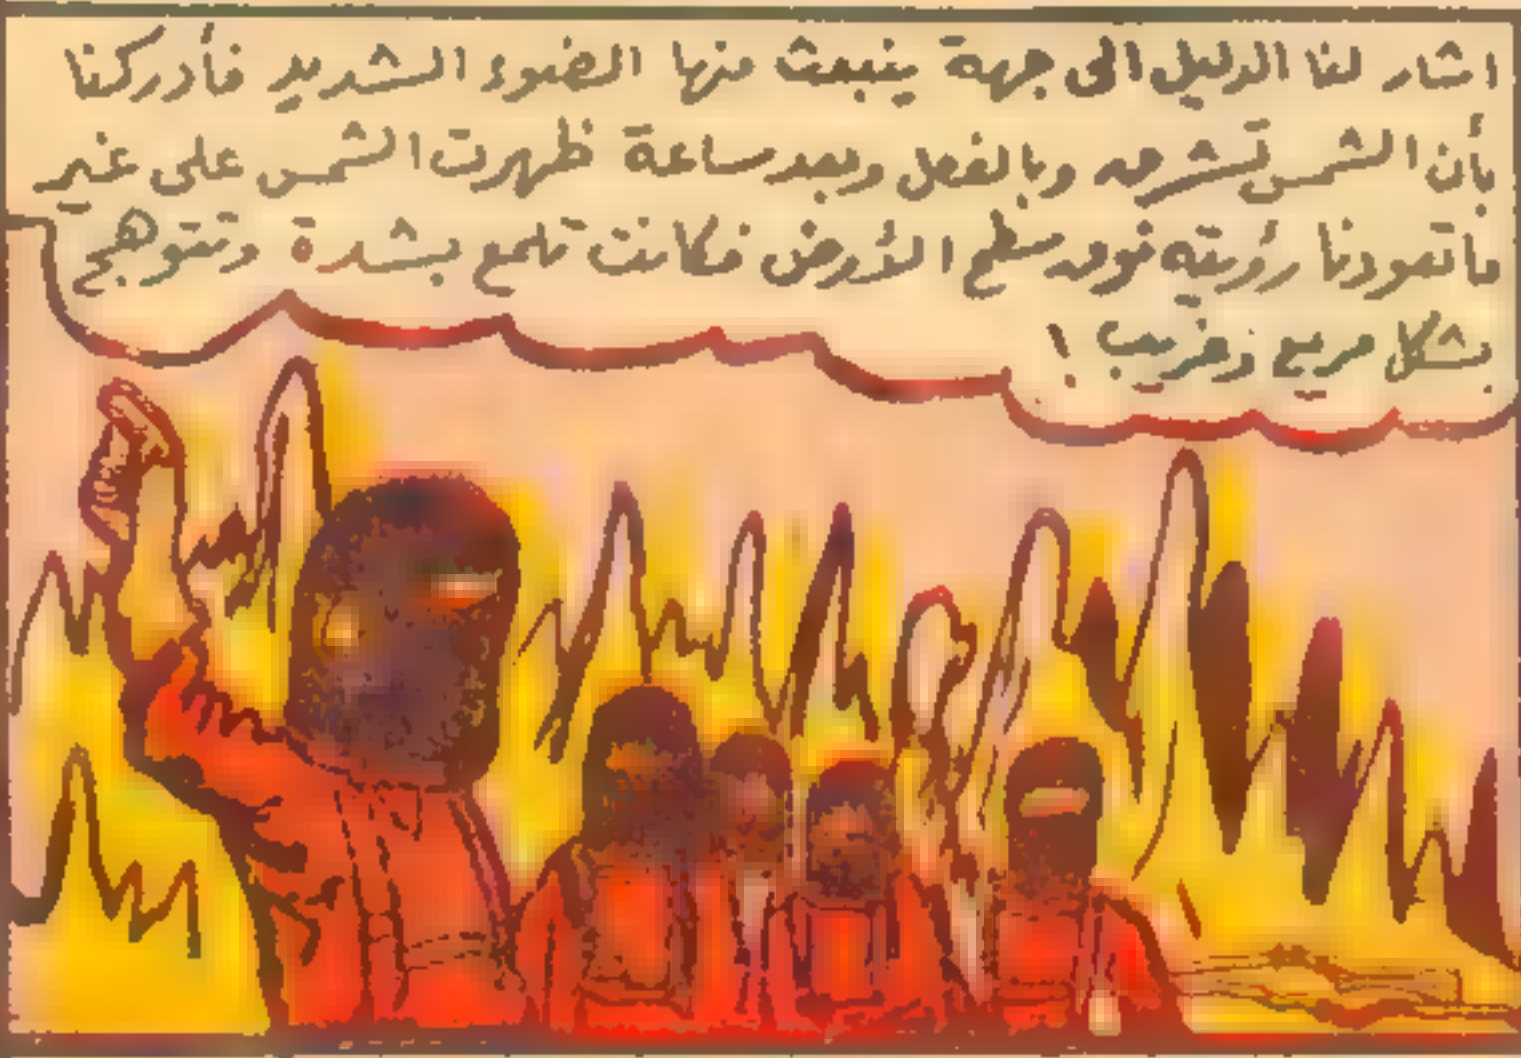 اشار لنا الدليل الى جهة ينبعث منها الضوء الشديد فأدركنا
بأن الشمس تشرق وبالفعل وبعد ساعة ظهرت الشمس على غير
ماتعودنا رؤيته فوق سطح الأرض فكانت تلمع بشدة وتتوهج
بشكل مريع وغريب !